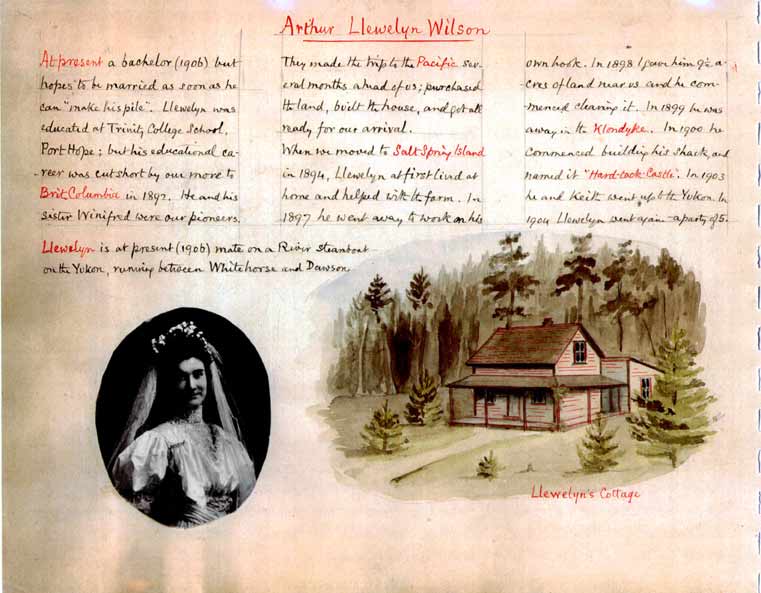 Arthur Llewelyn Wilson
At present a bachelor (1906) but
hopes to be married as soon as he
can "make his pile". Llewelyn was
educated at Trinity College School,
Port Hope; but his educational ca-
reer was cut short by our move to
Brit. Columbia in 1892. He and his
sister Winifred were our pioneers.
They made the trip to the Pacific sev-
eral months ahead of us; purchased
the land, built the house, and got all
ready for our arrival.
When we moved to Salt Spring Island
in 1894, Llewelyn at first lived at
home and helped with the farm. In
1897 he went away to work on his
own hook. In 1898 I gave him 9½ a-
cres of land near us and he com-
menced clearing it. In 1899 he was
away in the Klondyke. In 1900 he
commenced building his shack, and
named it "Hard-tack-Castle". In 1903
he and Keith went up to the Yukon. In
1904 Llewelyn went again - a party of 5.
Llewelyn is at present (1906) mate on a River steamboat
on the Yukon, running between Whitehorse and Dawson
Llewelyn's Cottage